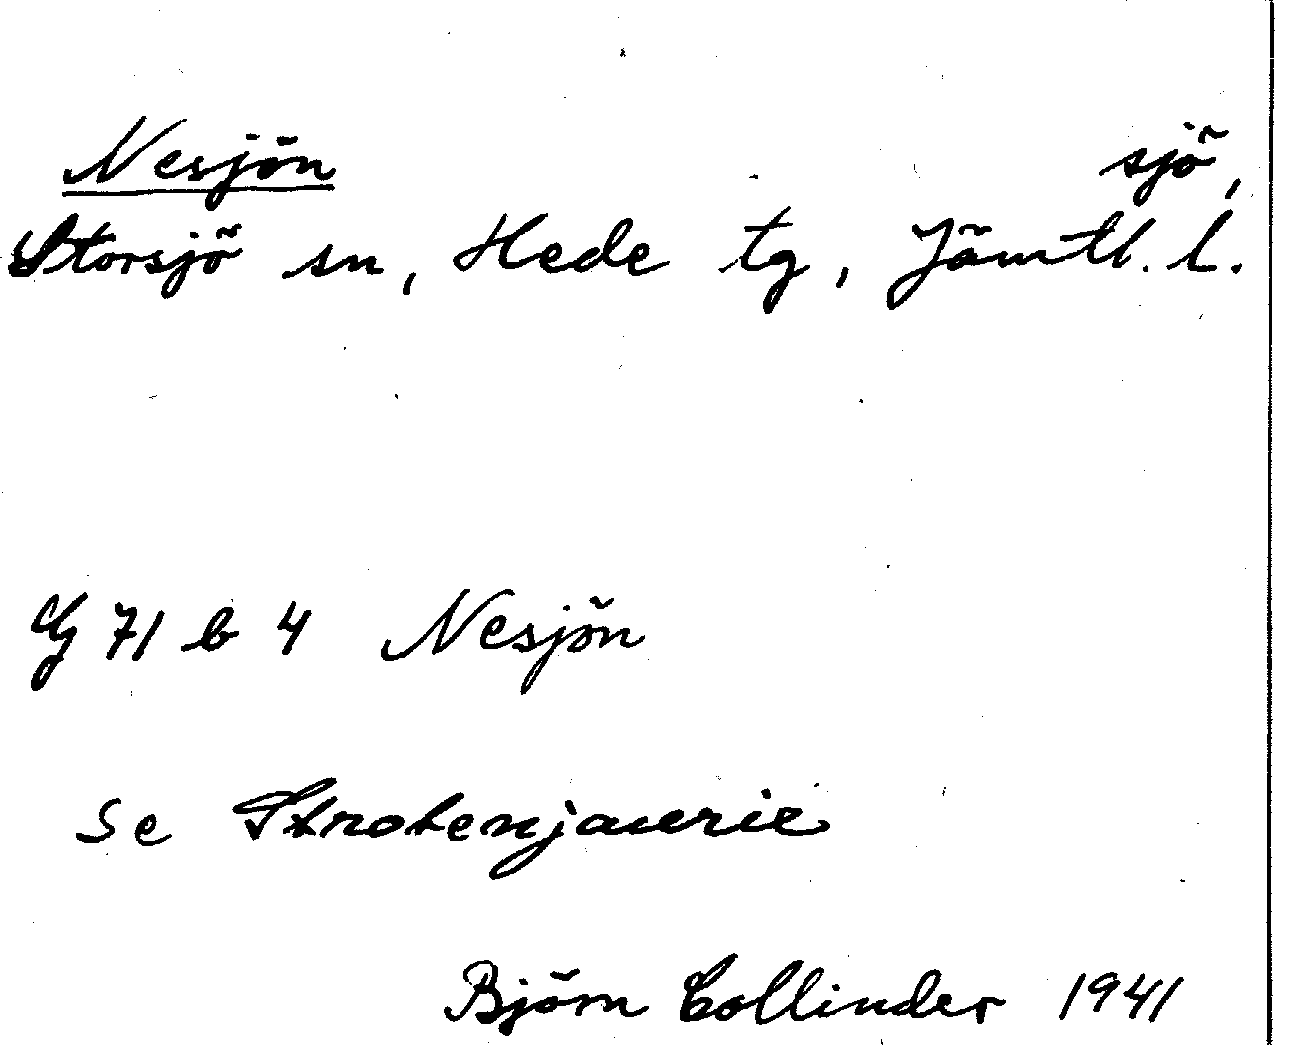 Nesjön sjö,
Storsjö sn, Hede tg, Jämtl. l.
G 71 b 4 Nesjön
Se Strokenjaurie
Björn Collinder 1941